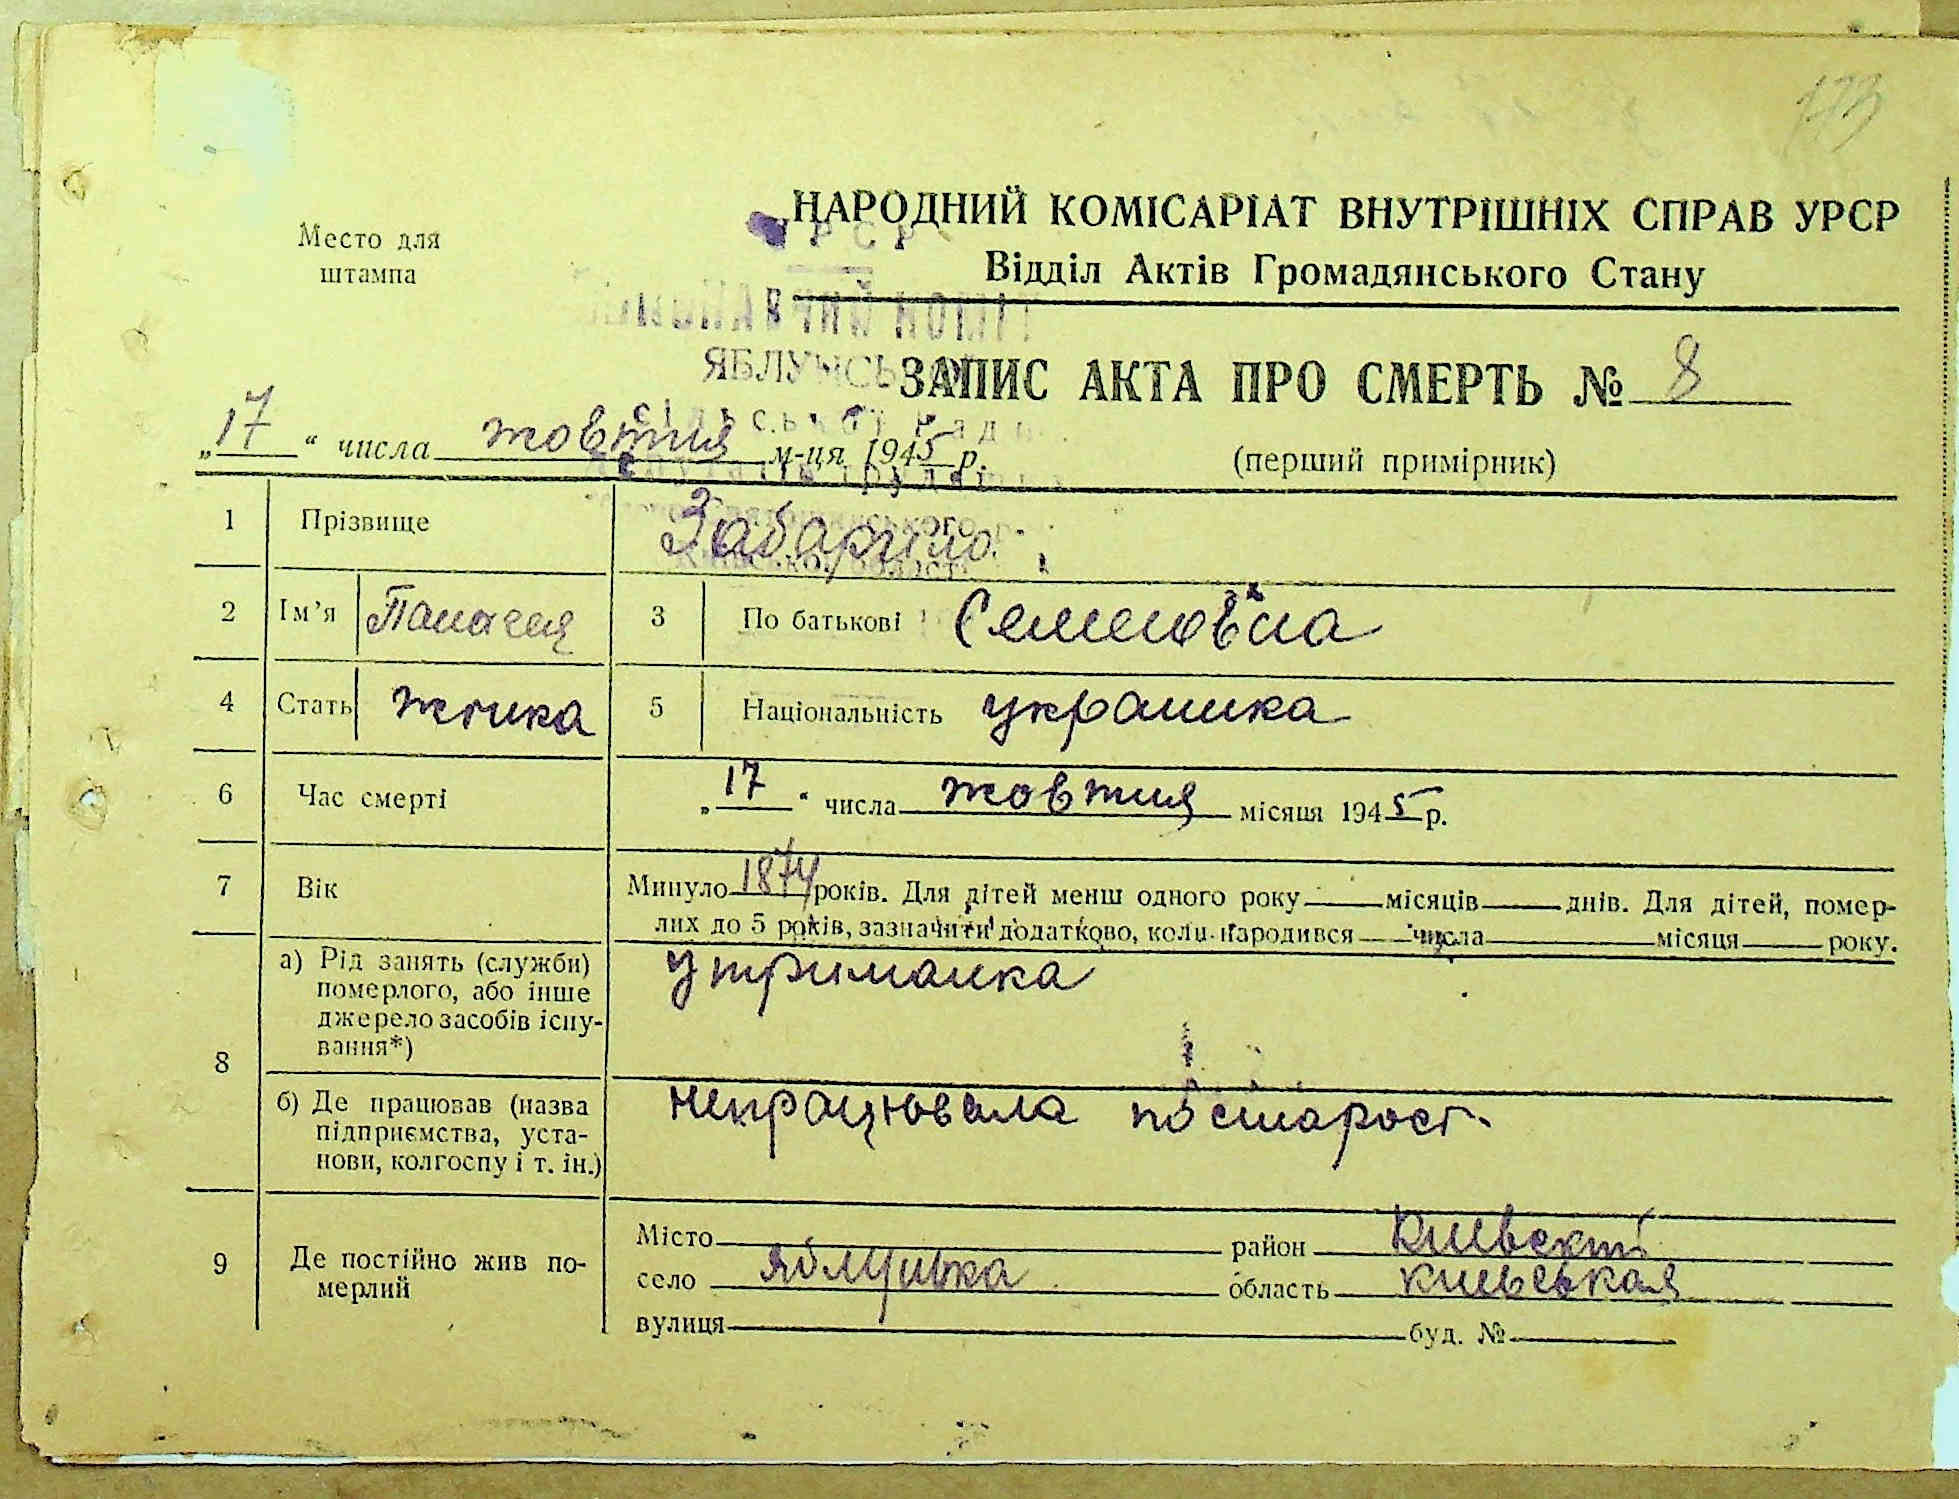 173
Место для
штампа
НАРОДНИЙ КОМІСАРІАТ ВНУТРІШНІХ СПРАВ УРСР
Відділ Актів Громадянського Стану
УРСР
ЯБЛУНСЬКОЇ
сільської Ради
Київської області
ЗАПИС АКТА ПРО СМЕРТЬ № 8
„17“ числа жовтня м-ця 1945 р.
(перший примірник)
1 Прізвище Забарило
2 Ім’я 3 По батькові Семеновна
4 Стать жінка 5 Національність українка
6 Час смерті „17“ числа жовтня місяця 1945 р.
7 Вік Минуло 1874 років. Для дітей менш одного року місяців днів. Для дітей, помер-
лих до 5 років, зазначити додатково, коли народився числа місяця року.
8 а) Рід занять (служби)
померлого, або інше
джерело засобів існу-
вання*)
утриманка
б) Де працював (назва
підприємства, уста-
нови, колгоспу і т. ін.)
непрацювала по старост
9 Де постійно жив по-
мерлий
Місто район Киевскі
село Яблунька область киевськая
вулиця буд. №